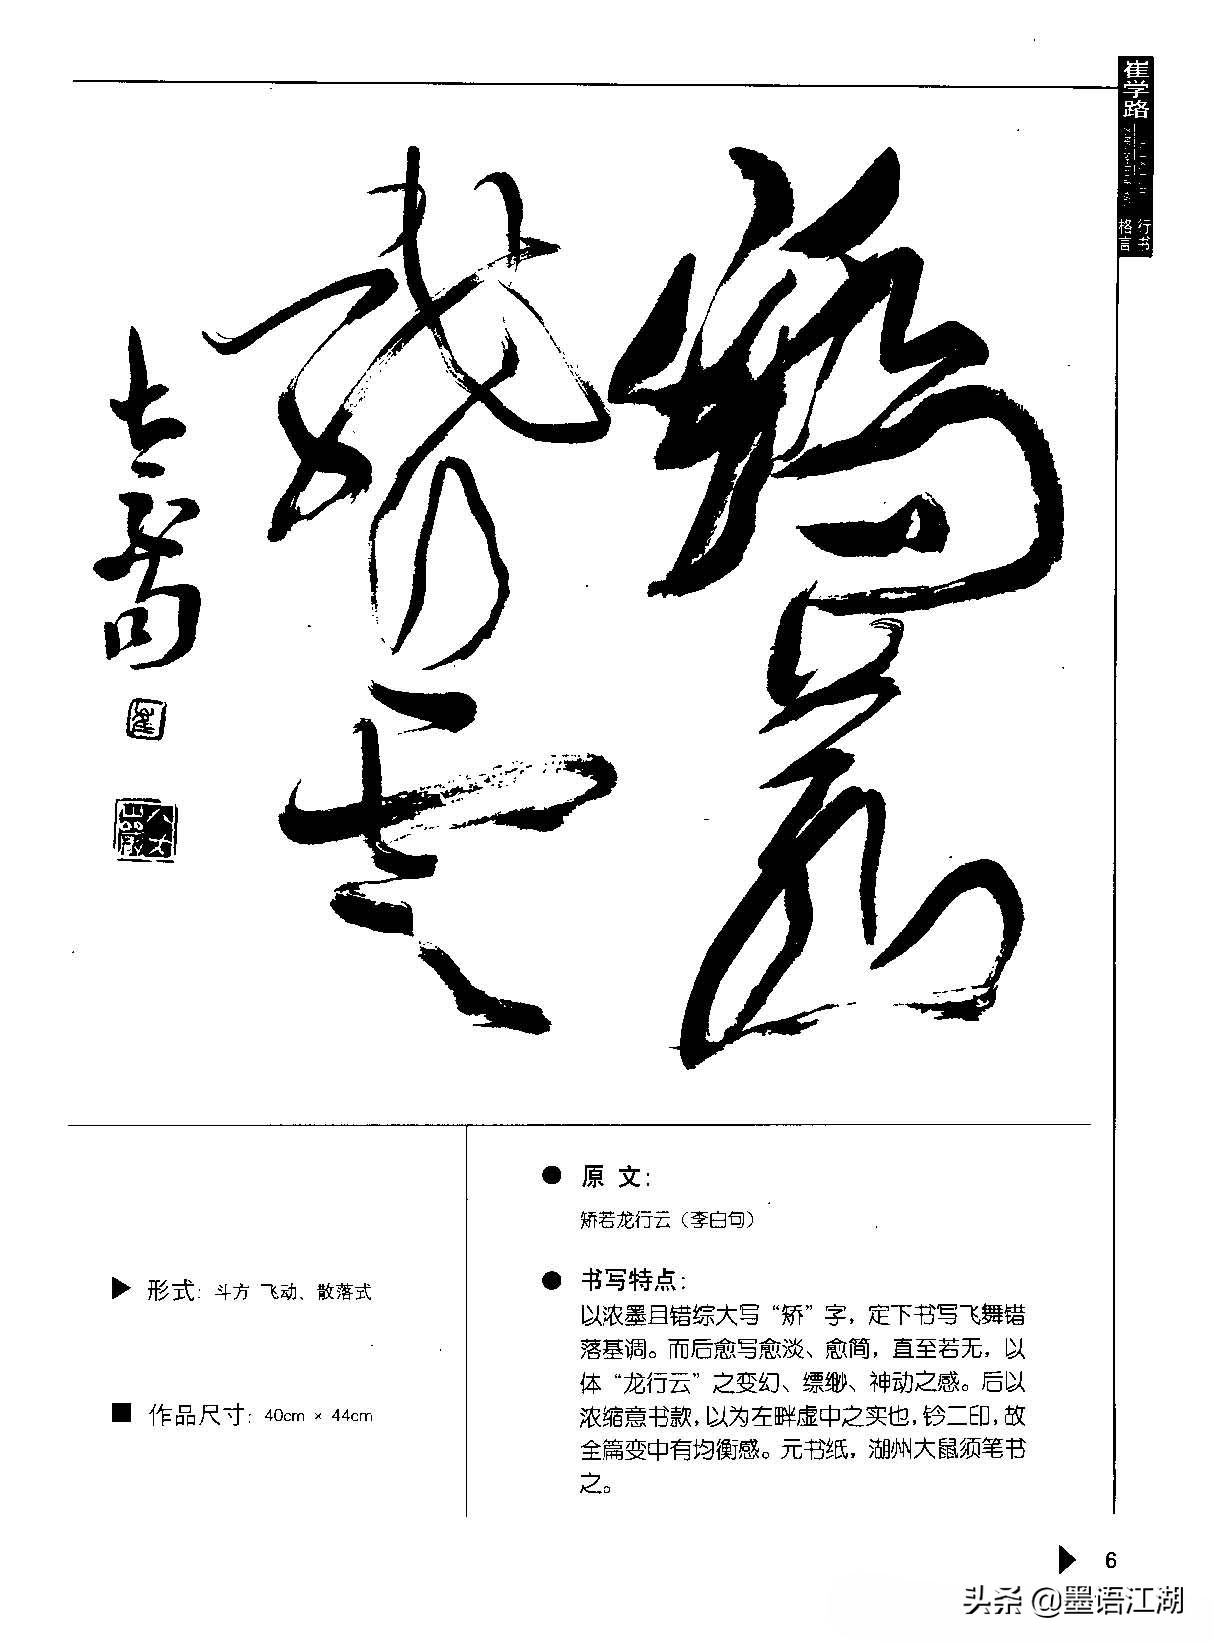 崔学路
行书
格言
矫若
龙行云
原文：
矫若龙行云（李白句）
形式：斗方 飞动、散落式
作品尺寸：40cm × 44cm
书写特点：
以浓墨且错综大写“矫”字，定下书写飞舞错
落基调。而后愈写愈淡、愈简，直至若无，以
体“龙行云”之变幻、缥缈、神动之感。后以
浓缩意书款，以为左畔虚中之实也，钤二印，故
全篇变中有均衡感。元书纸，湖州大鼠须笔书
之。
6
头条 @墨语江湖